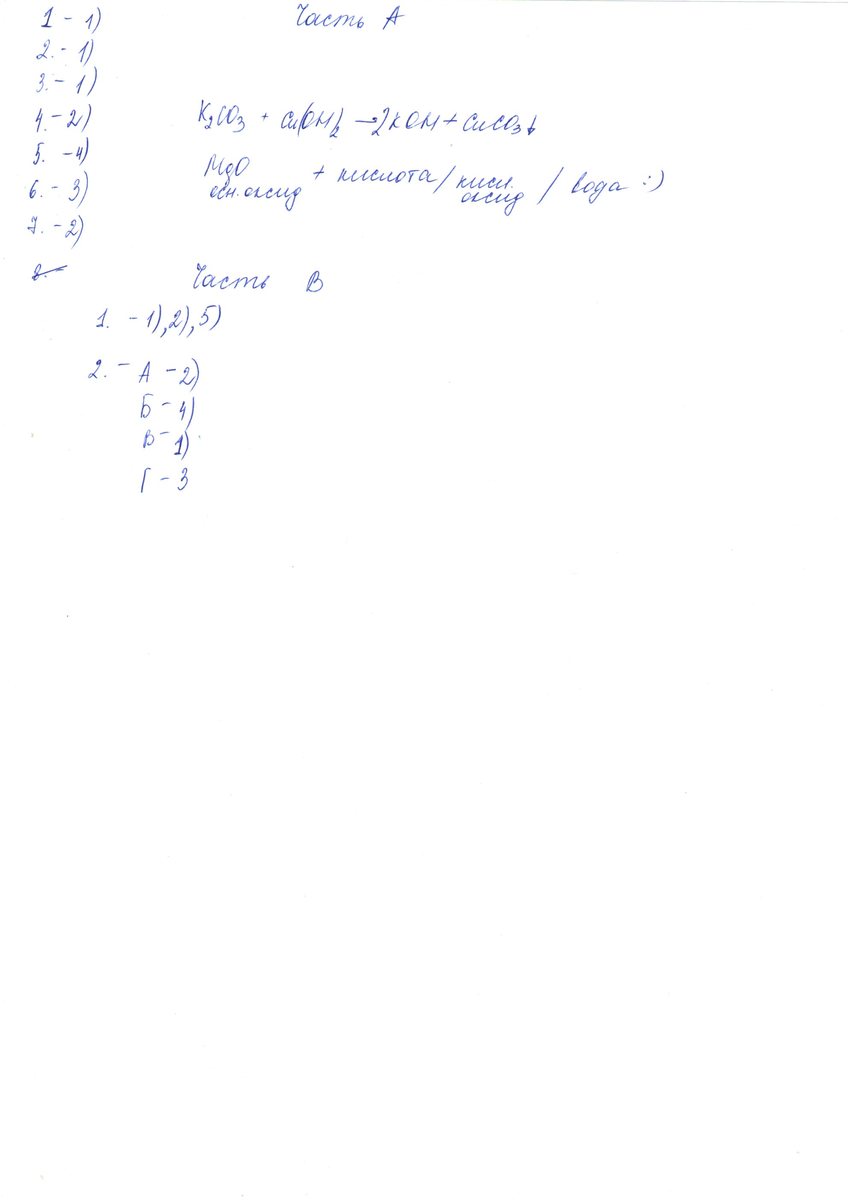 Часть А
1 - 1)
2. - 1)
3. - 1)
4. - 2) K₂CO₃ + Cu(OH)₂ → 2KOH + CuCO₃↓
5. - 4)
MgO + кислота / кисл. / вода :)
осн. оксид оксид
6. - 3)
7. - 2)
8. -
Часть В
1. - 1), 2), 5)
2. - А - 2)
Б - 4)
В - 1)
Г - 3